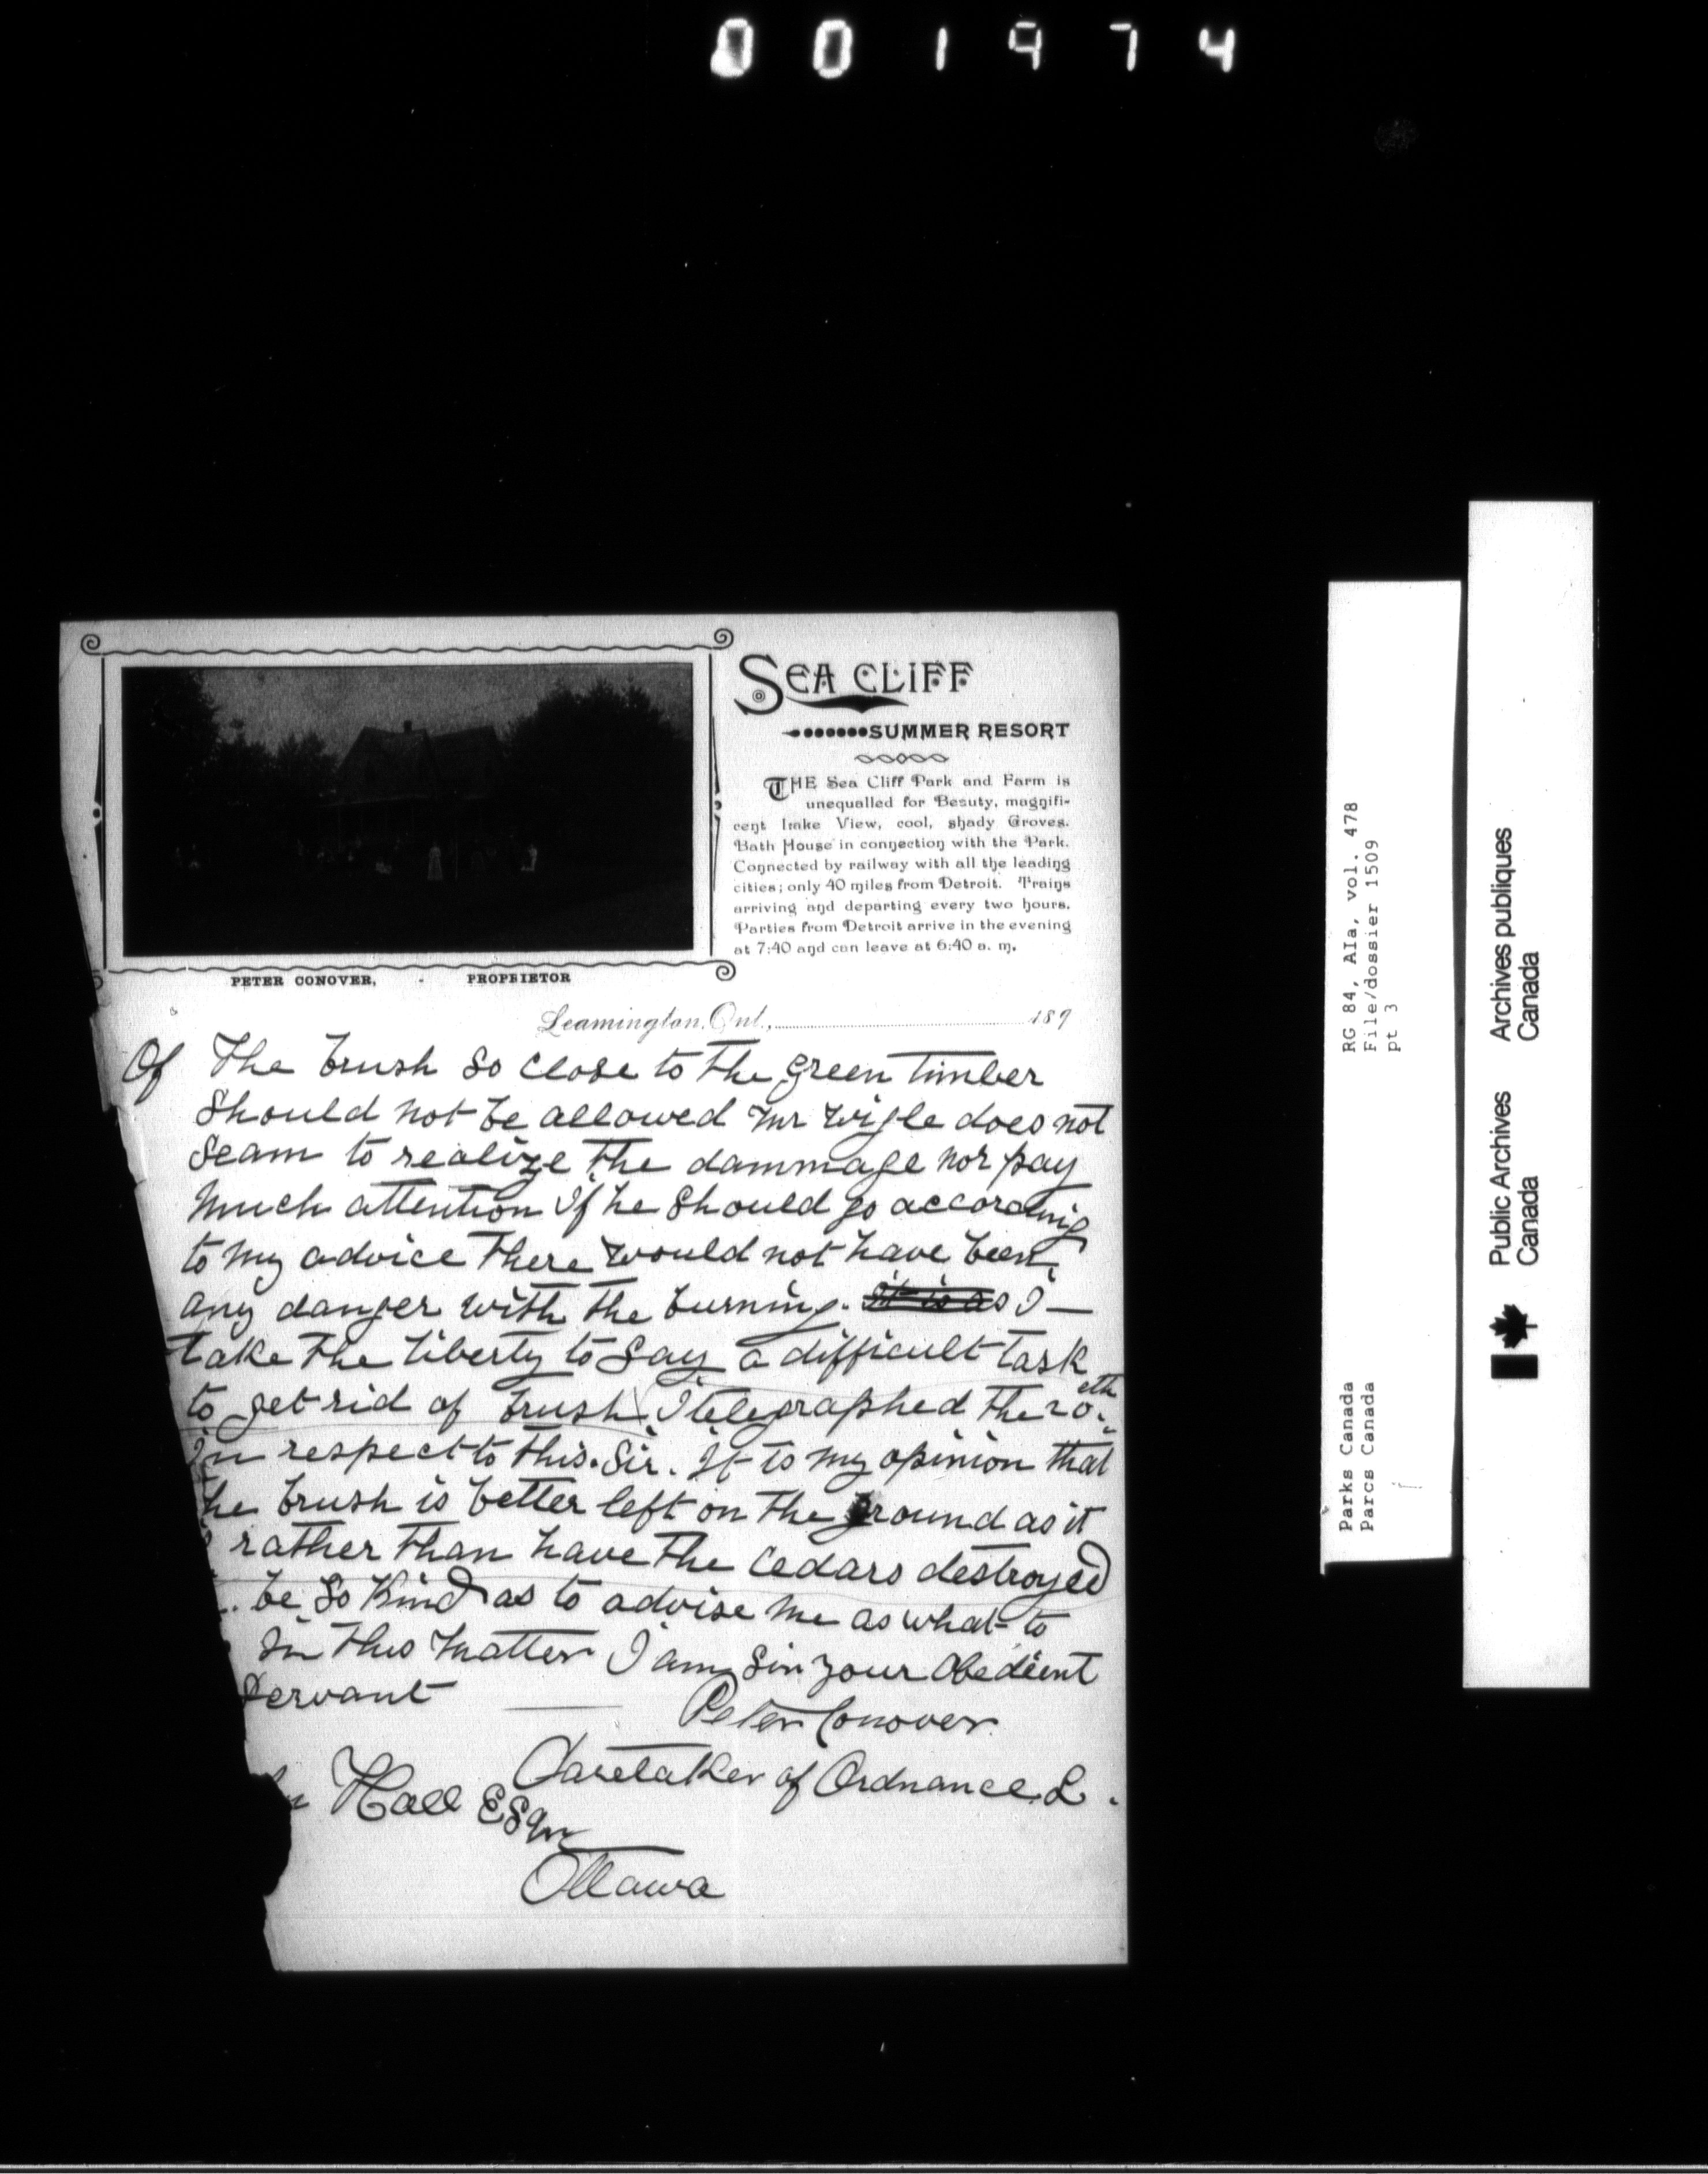 001974
SEA CLIFF
SUMMER RESORT
THE Sea Cliff Park and Farm is
unequalled for Beauty, magnifi-
cent Lake View, cool, shady Groves.
Bath House in connection with the Park.
Connected by railway with all the leading
cities; only 40 miles from Detroit. Trains
arriving and departing every two hours.
Parties from Detroit arrive in the evening
at 7:40 and can leave at 6:40 a. m.
PETER CONOVER, - PROPRIETOR
Leamington, Ont., 189
Of The brush so close to the green timber
Should not be allowed Mr Wigle does not
Seam to realize the dammage nor pay
Much attention If he Should go according
to my advice There would not have been
any danger with the burning. it is as I—
take the liberty to Say a difficult task
to get rid of brush I telegraphed the 20eth
In respect to this. Sir. It is my opinion that
he brush is better left on the ground as it
rather than have the Cedars destroyed
be So Kind as to advise me as what to
in this matter I am Sir your Obedient
Servant
Peter Conover
Caretaker of Ordnance L.
Hall Esqr
Ottawa
RG 84, A1a, vol. 478
File/dossier 1509
pt 3
Parks Canada
Parcs Canada
Public Archives Archives publiques
Canada Canada